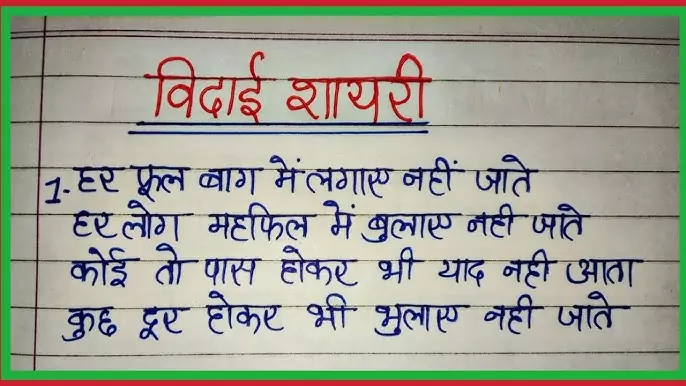 विदाई शायरी
1. हर फूल बाग में लगाए नहीं जाते
हर लोग महफिल में बुलाए नही जाते
कोई तो पास होकर भी याद नही आता
कुछ दूर होकर भी भुलाए नही जाते